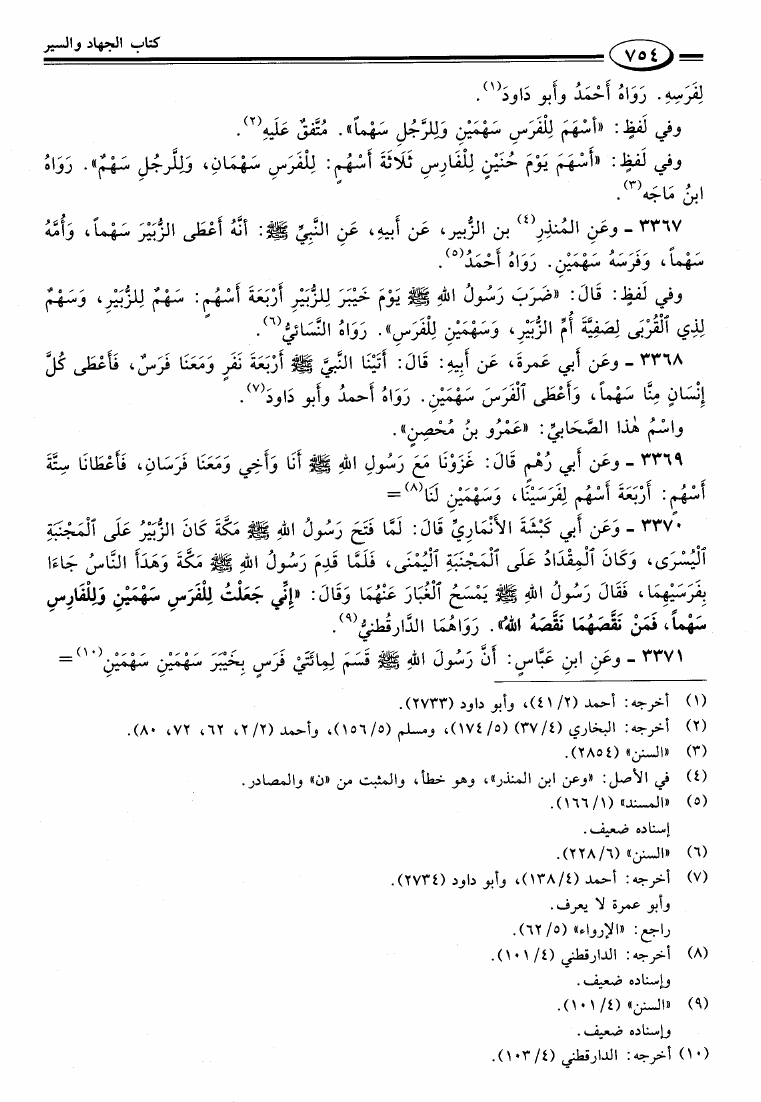 كتاب الجهاد والسير
٧٥٤
لِفَرَسِهِ. رَوَاهُ أَحْمَدُ وأبو دَاودَ(١).
وفي لَفظٍ: «أَسْهَمَ لِلْفَرَسِ سَهْمَيْنِ وَلِلرَّجُلِ سَهْماً». مُتَّفقٌ عَلَيهِ(٢).
وفي لَفظٍ: «أَسْهَمَ يَوْمَ حُنَيْنٍ لِلْفَارِسِ ثَلَاثَةَ أَسْهُمٍ: لِلْفَرَسِ سَهْمَانِ، وَلِلرَّجُلِ سَهْمٌ». رَوَاهُ
ابنُ مَاجَه(٣).
٣٣٦٧ - وعَنِ المُنذِرِ(٤) بن الزُّبير، عَن أَبيهِ، عَنِ النَّبيِّ ﷺ: أنَّهُ أَعْطَى الزُّبَيْرَ سَهْماً، وَأُمَّهُ
سَهْماً، وَفَرَسَهُ سَهْمَيْنِ. رَوَاهُ أَحْمَدُ(٥).
وفي لَفظٍ: قَالَ: «ضَرَبَ رَسُولُ اللهِ ﷺ يَوْمَ خَيْبَرَ لِلزُّبَيْرِ أَرْبَعَةَ أَسْهُمٍ: سَهْمٌ لِلزُّبَيْرِ، وَسَهْمٌ
لِذِي ٱلْقُرْبَى لِصَفِيَّةَ أُمِّ الزُّبَيْرِ، وَسَهْمَيْنِ لِلْفَرَسِ». رَوَاهُ النَّسَائيُّ(٦).
٣٣٦٨ - وعَن أبي عَمرةَ، عَن أَبِيهِ: قَالَ: أَتَيْنَا النَّبيَّ ﷺ أَرْبَعَةَ نَفَرٍ وَمَعَنَا فَرَسٌ، فَأَعْطَى كُلَّ
إِنْسَانٍ مِنَّا سَهْماً، وَأَعْطَى ٱلْفَرَسَ سَهْمَيْنِ. رَوَاهُ أَحمدُ وأبو دَاودَ(٧).
واسْمُ هٰذا الصَّحَابيِّ: «عَمْرُو بنُ مُحْصِنٍ».
٣٣٦٩ - وعَن أبي رُهْمٍ قَالَ: غَزَوْنَا مَعَ رَسُولِ اللهِ ﷺ أَنَا وَأَخِي وَمَعَنَا فَرَسَانِ، فَأَعْطَانَا سِتَّةَ
أَسْهُمٍ: أَرْبَعَةَ أَسْهُمٍ لِفَرَسَيْنَا، وَسَهْمَيْنِ لَنَا(٨)=
٣٣٧٠ - وَعَن أبي كَبْشَةَ الأنْمَارِيِّ قَالَ: لَمَّا فَتَحَ رَسُولُ اللهِ ﷺ مَكَّةَ كَانَ الزُّبَيْرُ عَلَى ٱلْمَجْنَبَةِ
ٱلْيُسْرَى، وَكَانَ ٱلْمِقْدَادُ عَلَى ٱلْمَجْنَبَةِ ٱلْيُمْنَى، فَلَمَّا قَدِمَ رَسُولُ اللهِ ﷺ مَكَّةَ وَهَدَأَ النَّاسُ جَاءَا
بِفَرَسَيْهِمَا، فَقَالَ رَسُولُ اللهِ ﷺ يَمْسَحُ ٱلْغُبَارَ عَنْهُمَا وَقَالَ: «إِنِّي جَعَلْتُ لِلْفَرَسِ سَهْمَيْنِ وَلِلْفَارِسِ
سَهْماً، فَمَنْ نَقَّصَهُمَا نَقَّصَهُ اللهُ». رَوَاهُمَا الدَّارقُطنيُّ(٩).
٣٣٧١ - وعَنِ ابنِ عَبَّاسٍ: أَنَّ رَسُولَ اللهِ ﷺ قَسَمَ لِمِائَتَيْ فَرَسٍ بِخَيْبَرَ سَهْمَيْنِ سَهْمَيْنِ(١٠)=
(١) أخرجه: أحمد (٤١/٢)، وأبو داود (٢٧٣٣).
(٢) أخرجه: البخاري (٣٧/٤) (١٧٤/٥)، ومسلم (١٥٦/٥)، وأحمد (٢/٢، ٦٢، ٧٢، ٨٠).
(٣) «السنن» (٢٨٥٤).
(٤) في الأصل: «وعن ابن المنذر»، وهو خطأ، والمثبت من «ن» والمصادر.
(٥) «المسند» (١٦٦/١).
إسناده ضعيف.
(٦) «السنن» (٢٢٨/٦).
(٧) أخرجه: أحمد (١٣٨/٤)، وأبو داود (٢٧٣٤).
وأبو عمرة لا يعرف.
راجع: «الإرواء» (٦٢/٥).
(٨) أخرجه: الدارقطني (١٠١/٤).
وإسناده ضعيف.
(٩) «السنن» (١٠١/٤).
وإسناده ضعيف.
(١٠) أخرجه: الدارقطني (١٠٣/٤).